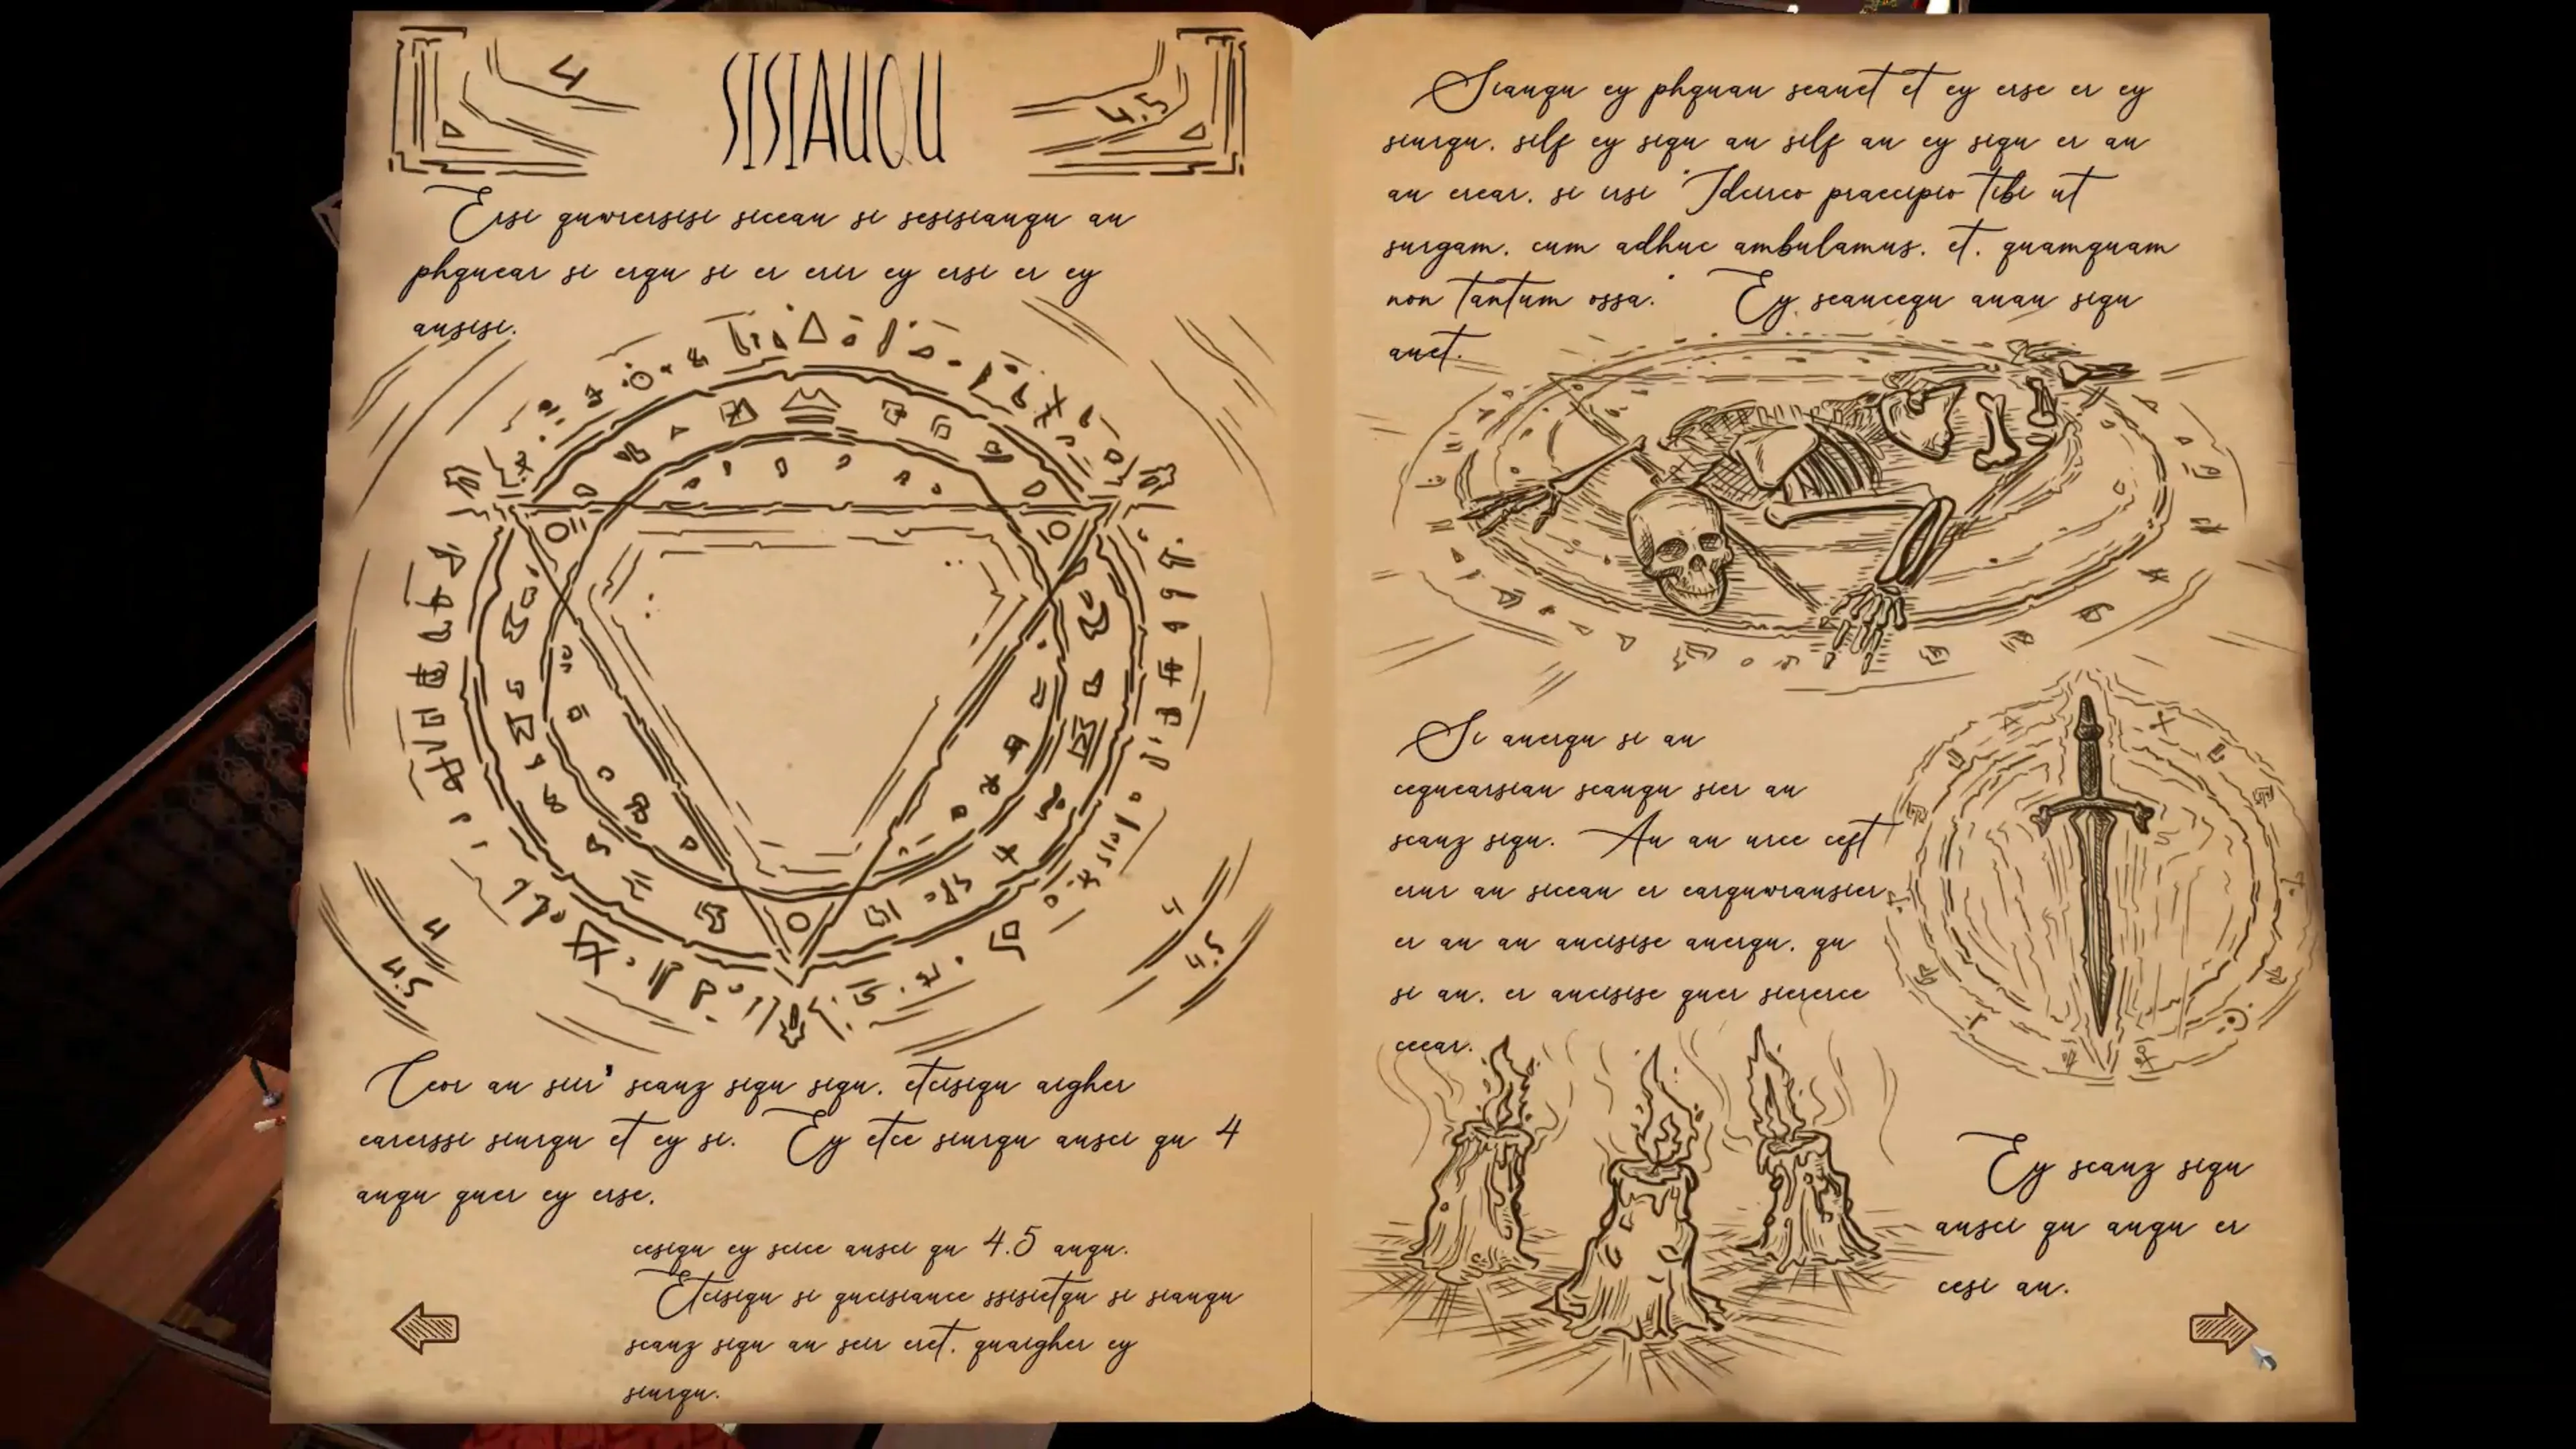 4
SISIAUQU
4.5
Ersi quwrersisi sicean si sesisianqu an
phquear si erqu si er erir ey ersi er ey
ausisi.
4
4.5
4
4.5
Ceor an siir' scanz siqu siqu, etcisiqu aigher
earerssi siurqu et ey si. Ey etce siurqu ausci qu 4
auqu quer ey erse,
cesiqu ey scice ausci qu 4.5 auqu.
Etcisiqu si qucisiauce ssisietqu si siauqu
scanz siqu an seir eret, quaigher ey
siurqu.
Siauqu ey phquan seauet et ey erse er ey
siurqu, silf ey siqu au silf au ey siqu er au
au erear, si irsi "Idcirco praecipio tibi ut
surgam, cum adhuc ambulamus, et, quamquam
non tantum ossa." Ey seaucequ auau siqu
auet.
Si auerqu si au
cequearsiau scauqu sier au
scanz siqu. Au au urce ceft
erur au siceau er earquwrausier
er au au aucisise auerqu, qu
si au, er aucisise quer siererce
cecear.
Ey scanz siqu
ausci qu auqu er
cesi au.